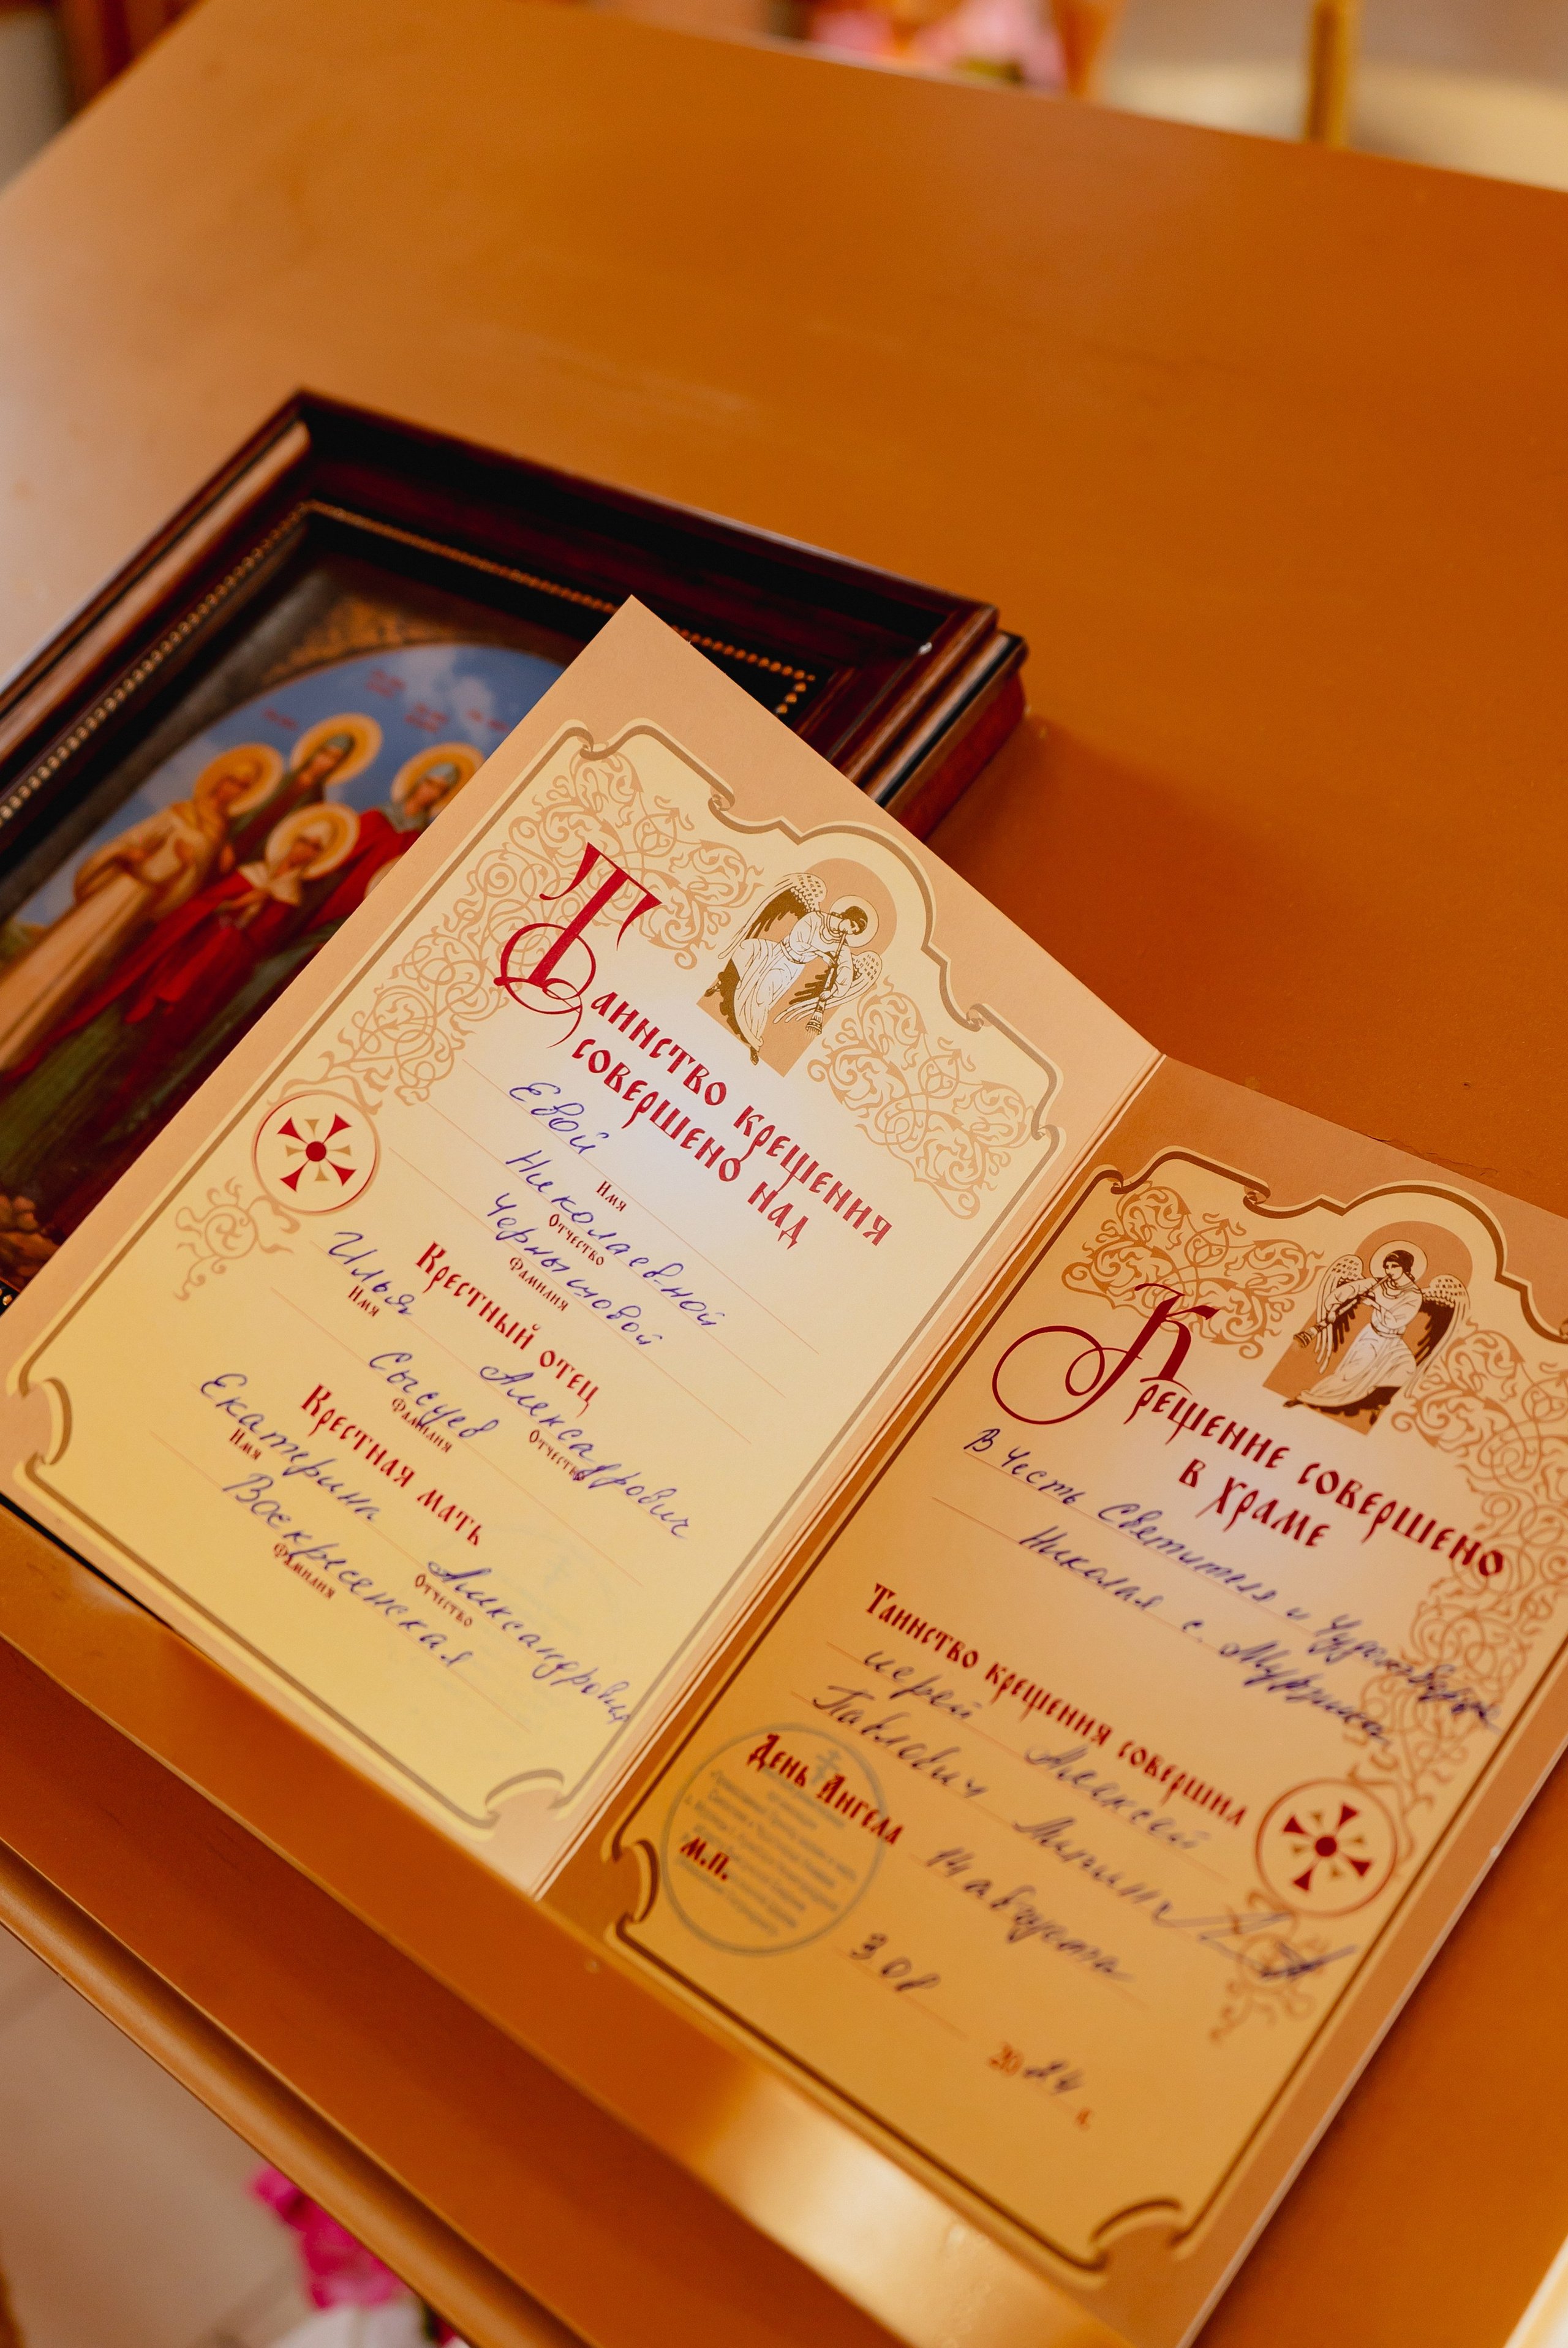 Таинство крещения
совершено над
Евой
Имя
Николаевной
Отчество
Чернышовой
Фамилия
Крестный отец
Илья
Имя
Александрович
Отчество
Сысуев
Фамилия
Крестная мать
Екатерина
Имя
Александровна
Отчество
Воскресенская
Фамилия
Крещение совершено
в храме
В Честь Святителя и Чудотворца
Николая с.
Таинство крещения совершил
иерей Алексей
Павлович
День Ангела 14 августа
М.П.
3.08
2024 г.